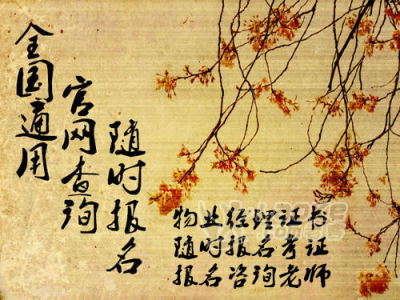 全国通用
官网查询
随时报名
物业经理证书
随时报名考证
报名咨询老师